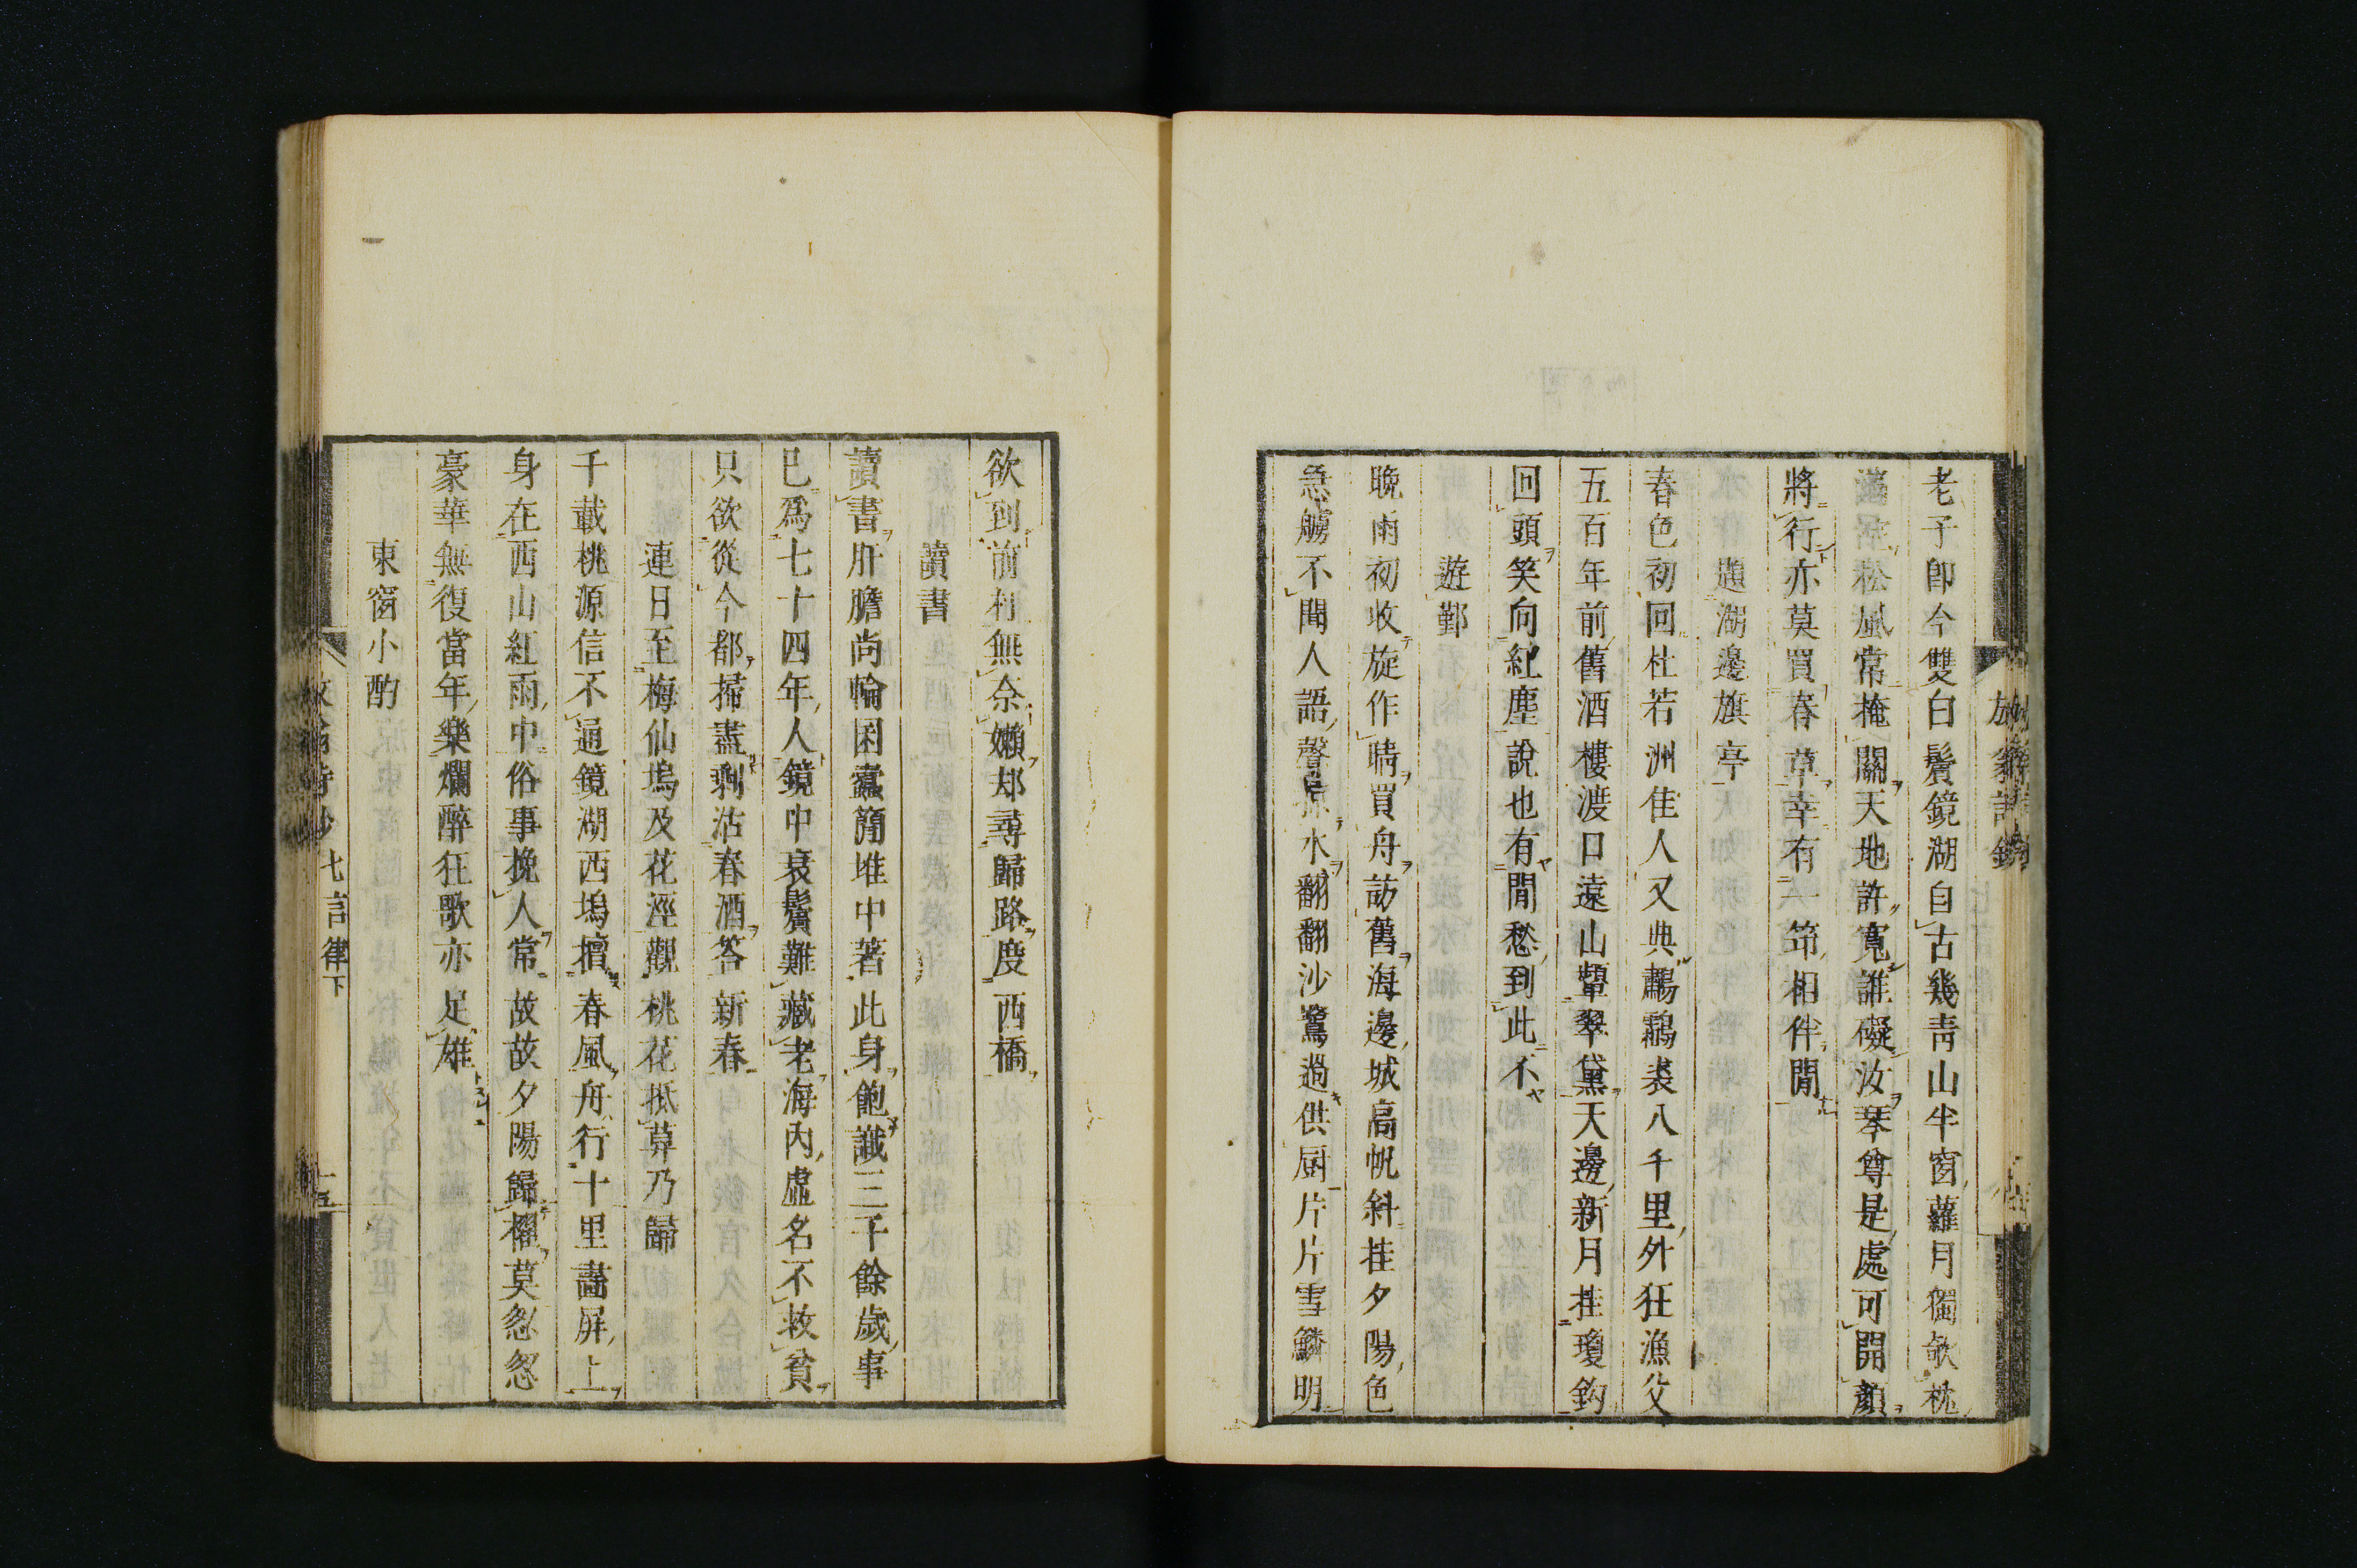 老子卽今雙白鬢鏡湖自古幾靑山半窗蘿月獨欹枕
滿居松風常掩關天地許寬誰礙汝琴尊是處可開顏
將行亦莫買春草幸有一筇相伴閒
題湖邊旗亭
春色初回杜若洲佳人又典鷫鸘裘八千里外狂漁父
五百年前舊酒樓渡口遠山顰翠黛天邊新月挂瓊鈎
回頭笑向紅塵說也有閒愁到此不
遊鄞
晚雨初收旋作晴買舟訪舊海邊城高帆斜挂夕陽色
急艣不聞人語聲掠水翻翻沙鷺過供厨片片雪鱗明
欲到前村無奈嬾却尋歸路度西橋
讀書
讀書肝膽尚輪囷蠹簡堆中著此身飽讖三千餘歲事
已爲七十四年人鏡中衰鬢難藏老海內虛名不救貧
只欲從今都掃盡剩沽春酒答新春
連日至梅仙塢及花涇觀桃花抵莫乃歸
千載桃源信不通鏡湖西塢擅春風舟行十里畫屏上
身在西山紅雨中俗事挽人常故故夕陽歸櫂莫怱怱
豪華無復當年樂爛醉狂歌亦足雄
東窗小酌
放翁詩鈔 七言律下 十五